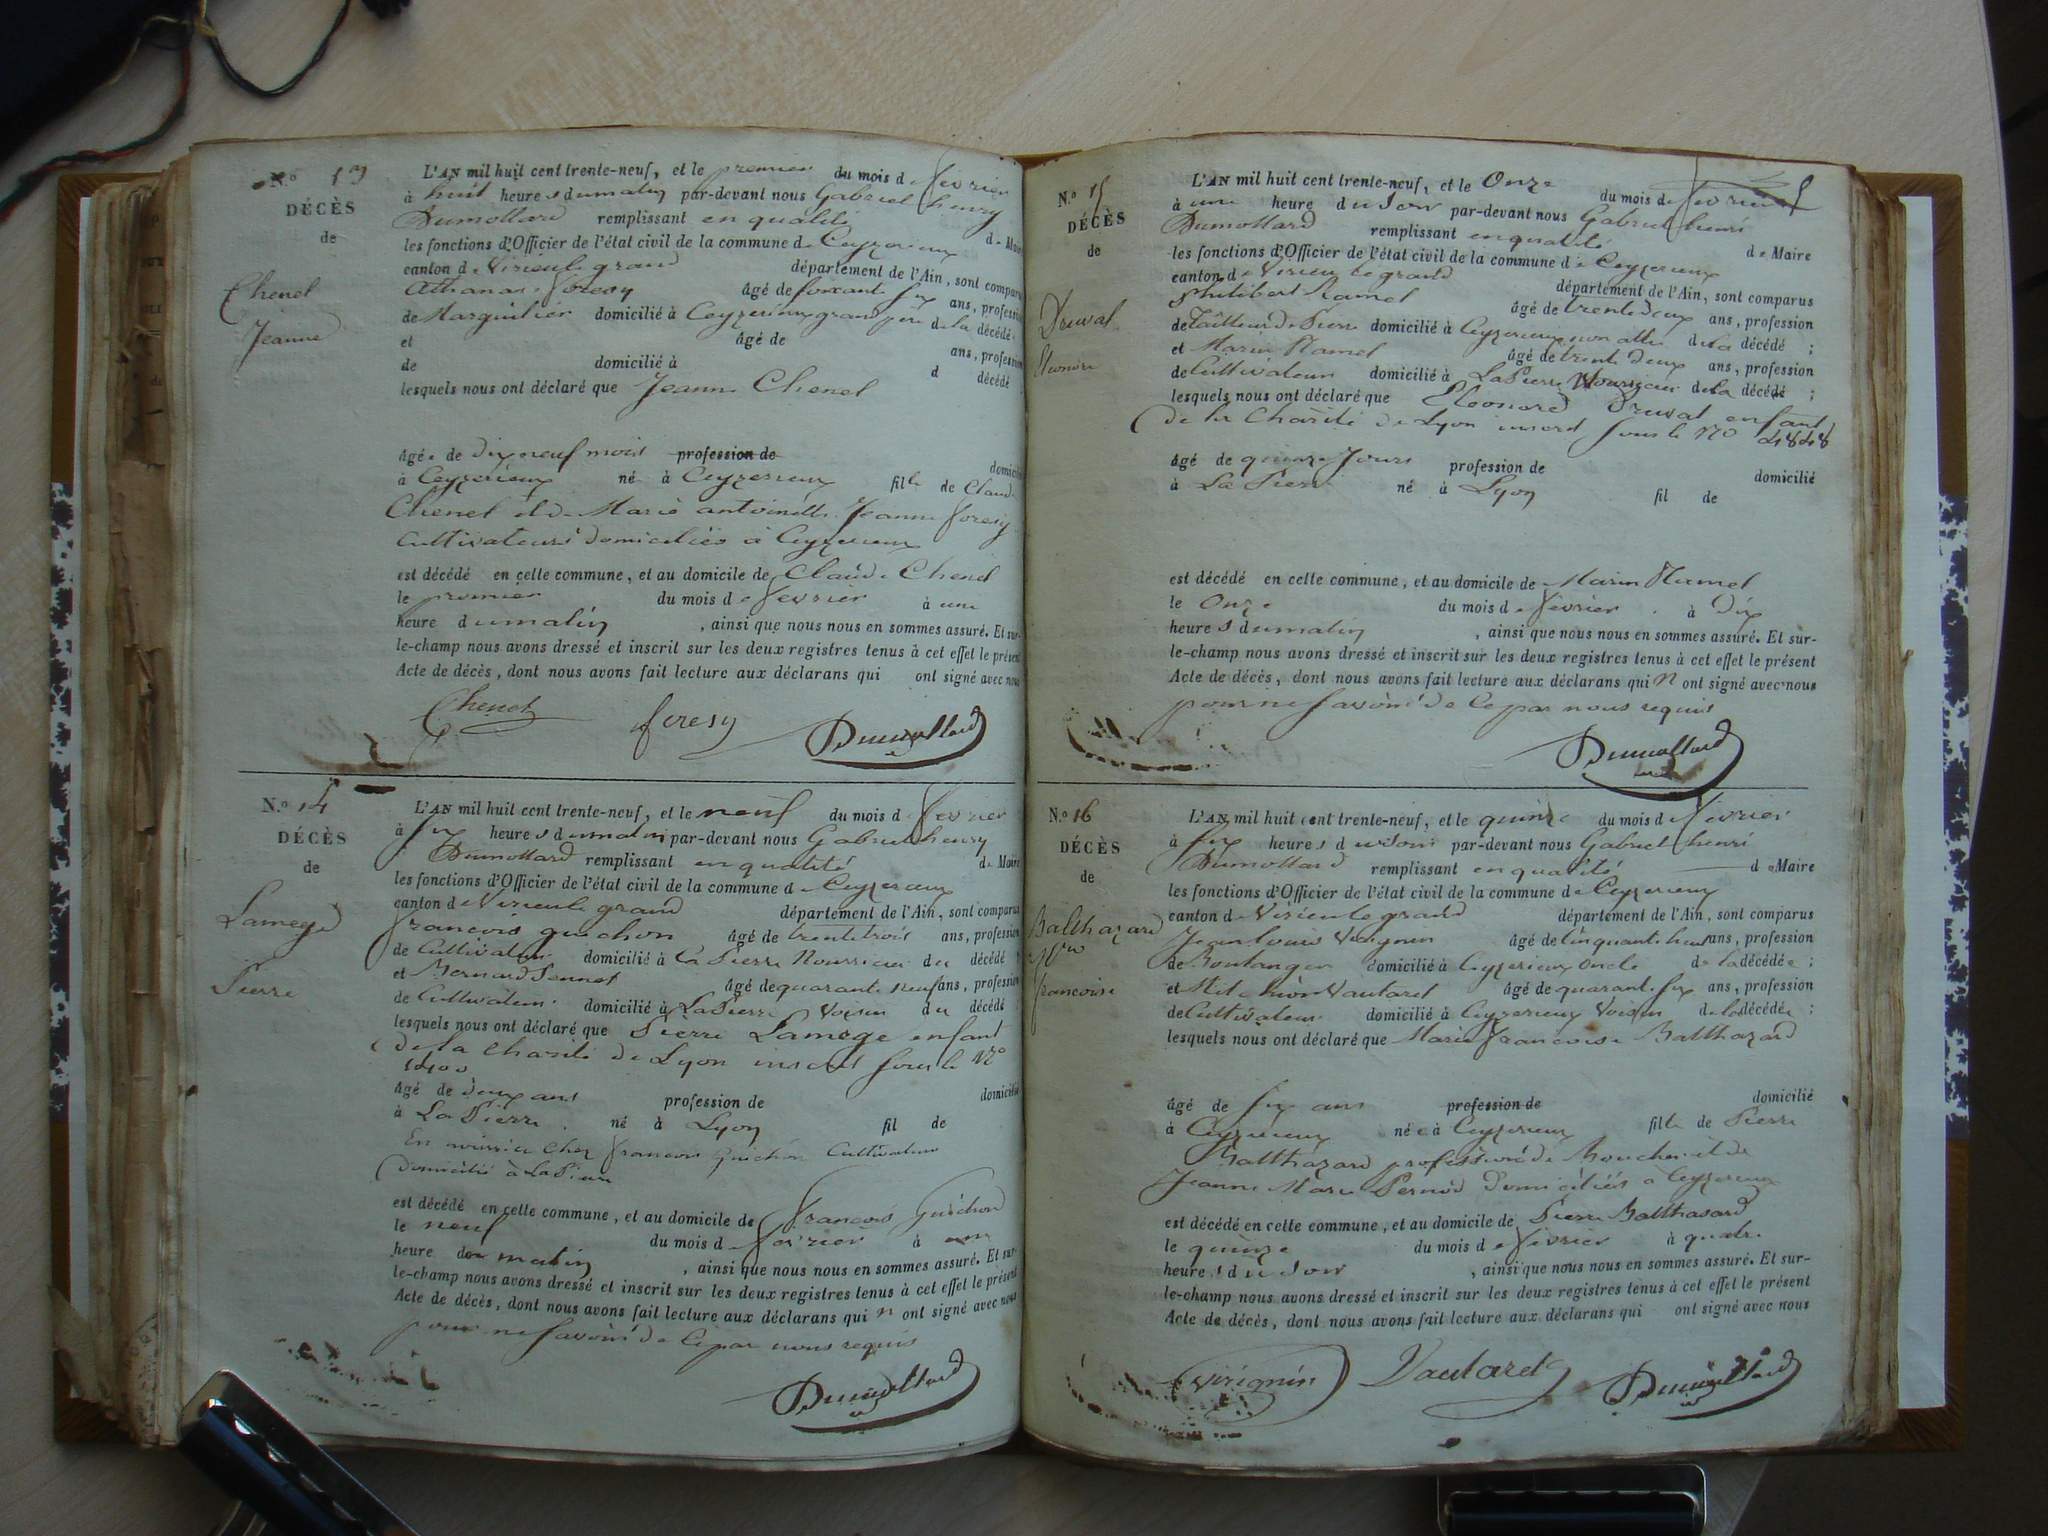 N.º 13
DÉCÈS
de
Chenel
Jeanne
L'AN mil huit cent trente-neuf, et le premier du mois de février
à huit heures du matin par-devant nous Gabriel henry
Dumollard remplissant en qualité de Maire
les fonctions d'Officier de l'état civil de la commune de Ceyzerieux
canton de Virieu le grand département de l'Ain, sont comparus
Athanase foresy âgé de soixante six ans, profession
de Marguilier domicilié à Ceyzerieux grand père de la décédé
et âgé de ans, profession
de domicilié à d décédé
lesquels nous ont déclaré que Jeanne Chenel
âgée de dix neuf mois profession de domicilié
à Ceyzerieux né à Ceyzerieux fille de Claude
Chenel et de Marie antoinette Jeanne foresy
Cultivateurs domiciliés à Ceyzerieux
est décédé en cette commune, et au domicile de Claude Chenel
le premier du mois de février à une
heure du matin , ainsi que nous nous en sommes assuré. Et sur-
le-champ nous avons dressé et inscrit sur les deux registres tenus à cet effet le présent
Acte de décès, dont nous avons fait lecture aux déclarans qui ont signé avec nous
Chenel foresy Dumollard
N.º 14
DÉCÈS
de
Lamege
Pierre
L'AN mil huit cent trente-neuf, et le neuf du mois de février
à six heures du matin par-devant nous Gabriel henry
Dumollard remplissant en qualité de Maire
les fonctions d'Officier de l'état civil de la commune de Ceyzerieux
canton de Virieu le grand département de l'Ain, sont comparus
francois guichon âgé de trente trois ans, profession
de Cultivateur domicilié à La Pierre Nourricier du décédé
et Bernard âgé de quarante neuf ans, profession
de Cultivateur domicilié à La Pierre Voisin du décédé
lesquels nous ont déclaré que Pierre Lamege enfant
de la Charité de Lyon inscrit sous le N.º
1400
âgé de deux ans profession de domicilié
à La Pierre né à Lyon fil de
En nourrice chez francois Guichon Cultivateur
domicilié à La Pierre
est décédé en cette commune, et au domicile de francois Guichon
le neuf du mois de février à une
heure du matin , ainsi que nous nous en sommes assuré. Et sur-
le-champ nous avons dressé et inscrit sur les deux registres tenus à cet effet le présent
Acte de décès, dont nous avons fait lecture aux déclarans qui n ont signé avec nous
pour ne savoir de ce par nous requis
Dumollard
N.º 15
DÉCÈS
de
Druval
Eleonore
L'AN mil huit cent trente-neuf, et le Onze du mois de février
à une heure du soir par-devant nous Gabriel henri
Dumollard remplissant en qualité de Maire
les fonctions d'Officier de l'état civil de la commune de Ceyzerieux
canton de Virieu le grand département de l'Ain, sont comparus
Philibert Ramel âgé de trente deux ans, profession
de Tailleur de Pierre domicilié à Ceyzerieux non allié de la décédé ;
et Marin Ramel âgé de trente deux ans, profession
de Cultivateur domicilié à La Pierre Nourricier de la décédé ;
lesquels nous ont déclaré que Eleonord Druval enfant
de la Charité de Lyon inscrit sous le No 4848
âgé de quinze Jours profession de domicilié
à La Pierre né à Lyon fil de
est décédé en cette commune, et au domicile de Marin Ramel
le Onze du mois de février à dix
heures du matin , ainsi que nous nous en sommes assuré. Et sur-
le-champ nous avons dressé et inscrit sur les deux registres tenus à cet effet le présent
Acte de décès, dont nous avons fait lecture aux déclarans qui n ont signé avec nous
pour ne savoir de ce par nous requis
Dumollard
N.º 16
DÉCÈS
de
Balthazard
francoise
L'AN mil huit cent trente-neuf, et le quinze du mois de février
à six heures du soir par-devant nous Gabriel henri
Dumollard remplissant en qualité de Maire
les fonctions d'Officier de l'état civil de la commune de Ceyzerieux
canton de Virieu le grand département de l'Ain, sont comparus
Jean louis Virignin âgé de Cinquante huit ans, profession
de Boulanger domicilié à Ceyzerieux Oncle de la décédée ;
et Vautaret âgé de quarante six ans, profession
de Cultivateur domicilié à Ceyzerieux Voisin de la décédée ;
lesquels nous ont déclaré que Marie francoise Balthazard
âgé de six ans profession de domicilié
à Ceyzerieux née à Ceyzerieux fille de Pierre
Balthazard profession de Boucher et de
Jeanne Marie Pernod domiciliés à Ceyzerieux
est décédé en cette commune, et au domicile de Pierre Balthasard
le quinze du mois de février à quatre
heures du soir , ainsi que nous nous en sommes assuré. Et sur-
le-champ nous avons dressé et inscrit sur les deux registres tenus à cet effet le présent
Acte de décès, dont nous avons fait lecture aux déclarans qui ont signé avec nous
Virignin Vautaret Dumollard